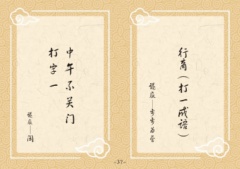 中午不关门
打字一
谜底——闯
行商（打一成语）
谜底——
-37-